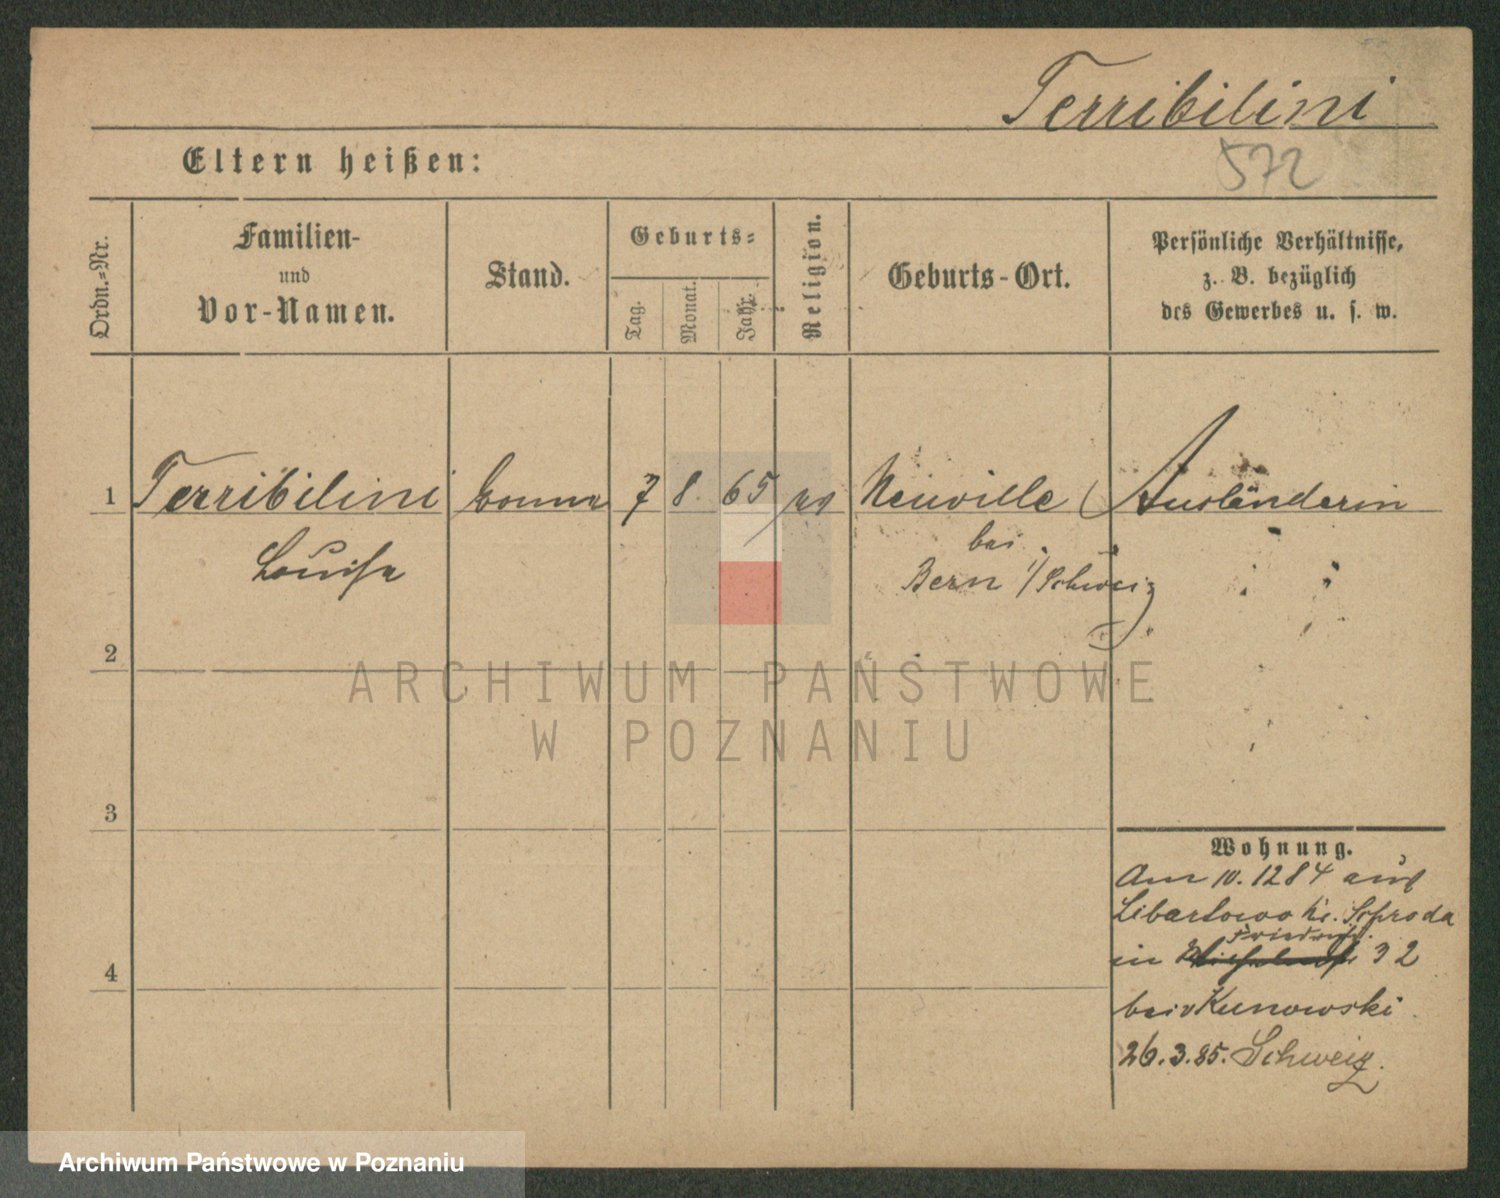 Terribilini
572
Eltern heißen:
Ordn.-Nr.
Familien-
und
Vor-Namen.
Stand.
Geburts-
Tag.
Monat.
Jahr.
Religion.
Geburts-Ort.
Persönliche Verhältnisse,
z. B. bezüglich
des Gewerbes u. s. w.
1 Terribilini Bonne 7 8 65 ev Neuville Ausländerin
Louise
bei
Bern i/Schweiz
2
ARCHIWUM PAŃSTWOWE
W POZNANIU
3
Wohnung.
Am 10.12 84 aus
Libartowo Kr. Schroda
in Friedrichs. 32
bei v Kunowski
4
26.3.85. Schweiz.
Archiwum Państwowe w Poznaniu